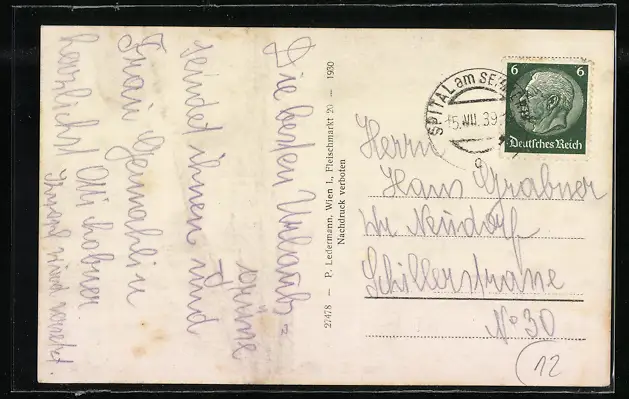 Die besten Urlaubs-
grüsse
sendet Ihnen und
Frau Gemahlin
herrlichst
27478 — P. Ledermann, Wien I., Fleischmarkt 20 — 1930
Nachdruck verboten
SPITAL am SEMMERING
15.VIII.39
6 6
Deutsches Reich
Herrn
Hans Grabner
Wr Neudorf
Schillerstrasse
No 30
12